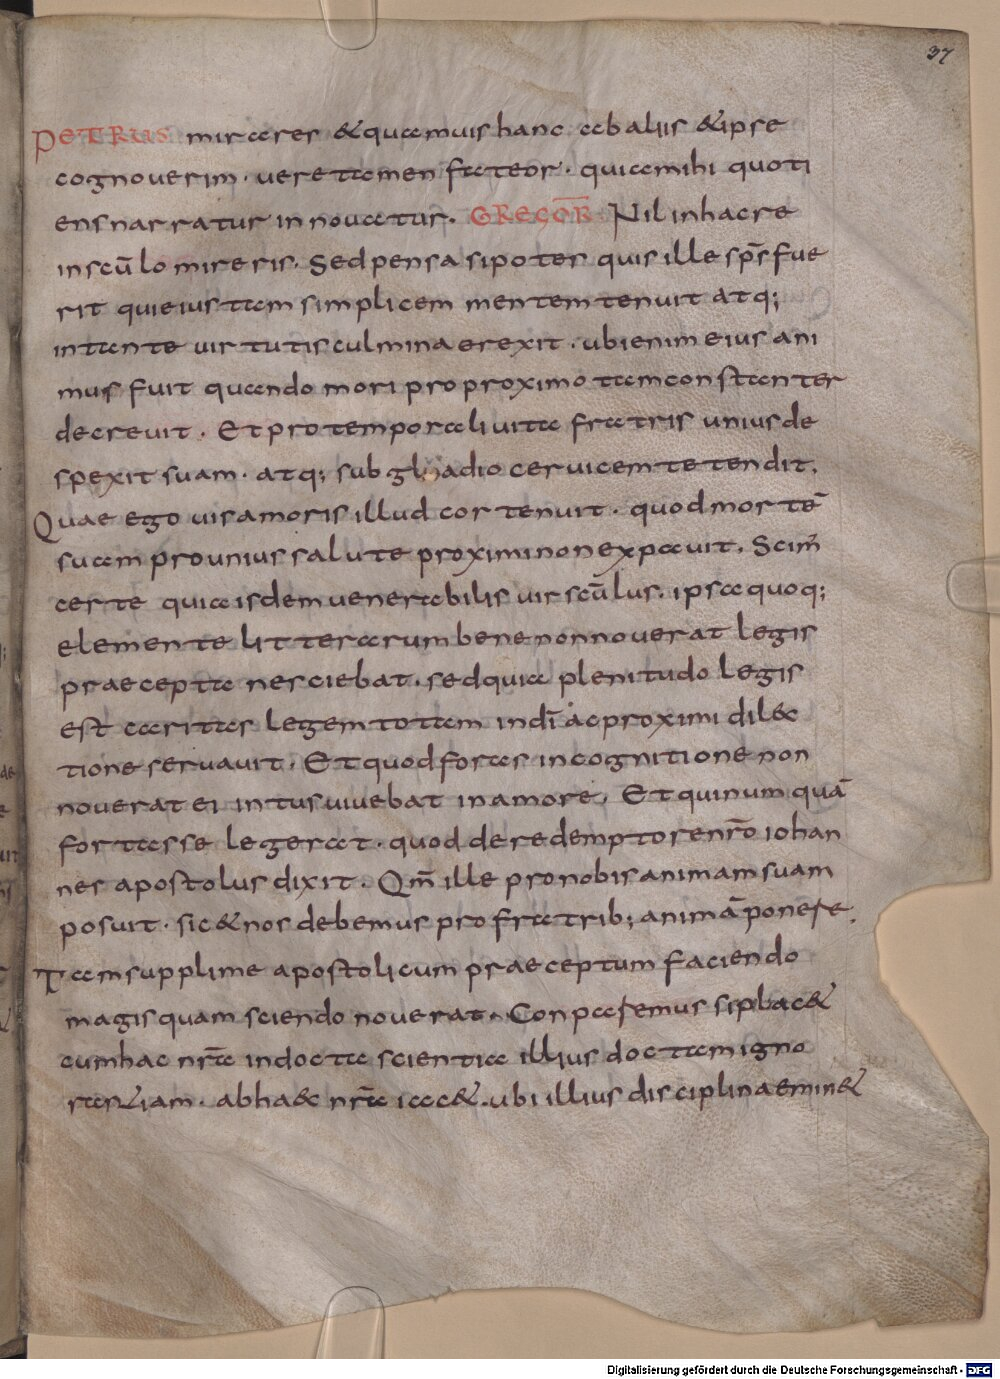 37
PETRUS mira res &quamuis hanc ab aliis &ipse
cognouerim · uere tamen fateor · quia mihi quoti
ens narratur innouatur · GREGOR̄ Nil in hac re
in scū lo mireris · Sed pensa si potes quis ille sp̄s fue
rit qui eius tam simplicem mentem tenuit atq;
in tante uirtutis culmina erexit · ubi enim eius ani
mus fuit quando mori pro proximo tam constanter
decreuit · Et pro temporali uita fratris unius de
spexit suam · atq; sub gladio ceruicem tetendit ·
Quae ego uis amoris illud cor tenuit · quod mortē
suam pro unius salute proximi non expauit · Scim̄
certe quia isdem uenerabilis uir scū lus · ipsa quoq;
elementa litterarum bene non nouerat legis
praecepta nesciebat · sed quia plenitudo legis
est caritas legem totam in dī ac proximi dil&c
tione seruauit · Et quod foras in cognitione non
nouerat ei intus uiuebat in amore · Et qui numquā
fortasse legerat · quod de redemptore nr̄o iohan
nes apostolus dixit · Qm̄ ille pro nobis animam suam
posuit · sic &nos debemus pro fratrib; animā ponere ·
Tam supplime apostolicum praeceptum faciendo
magis quam sciendo nouerat · Conparemus si plac&
cum hac nr̄a indocta scientia illius doctam igno
rantiam · ab haec nr̄a iac& · ubi illius disciplina emin&
Digitalisierung gefördert durch die Deutsche Forschungsgemeinschaft - DFG